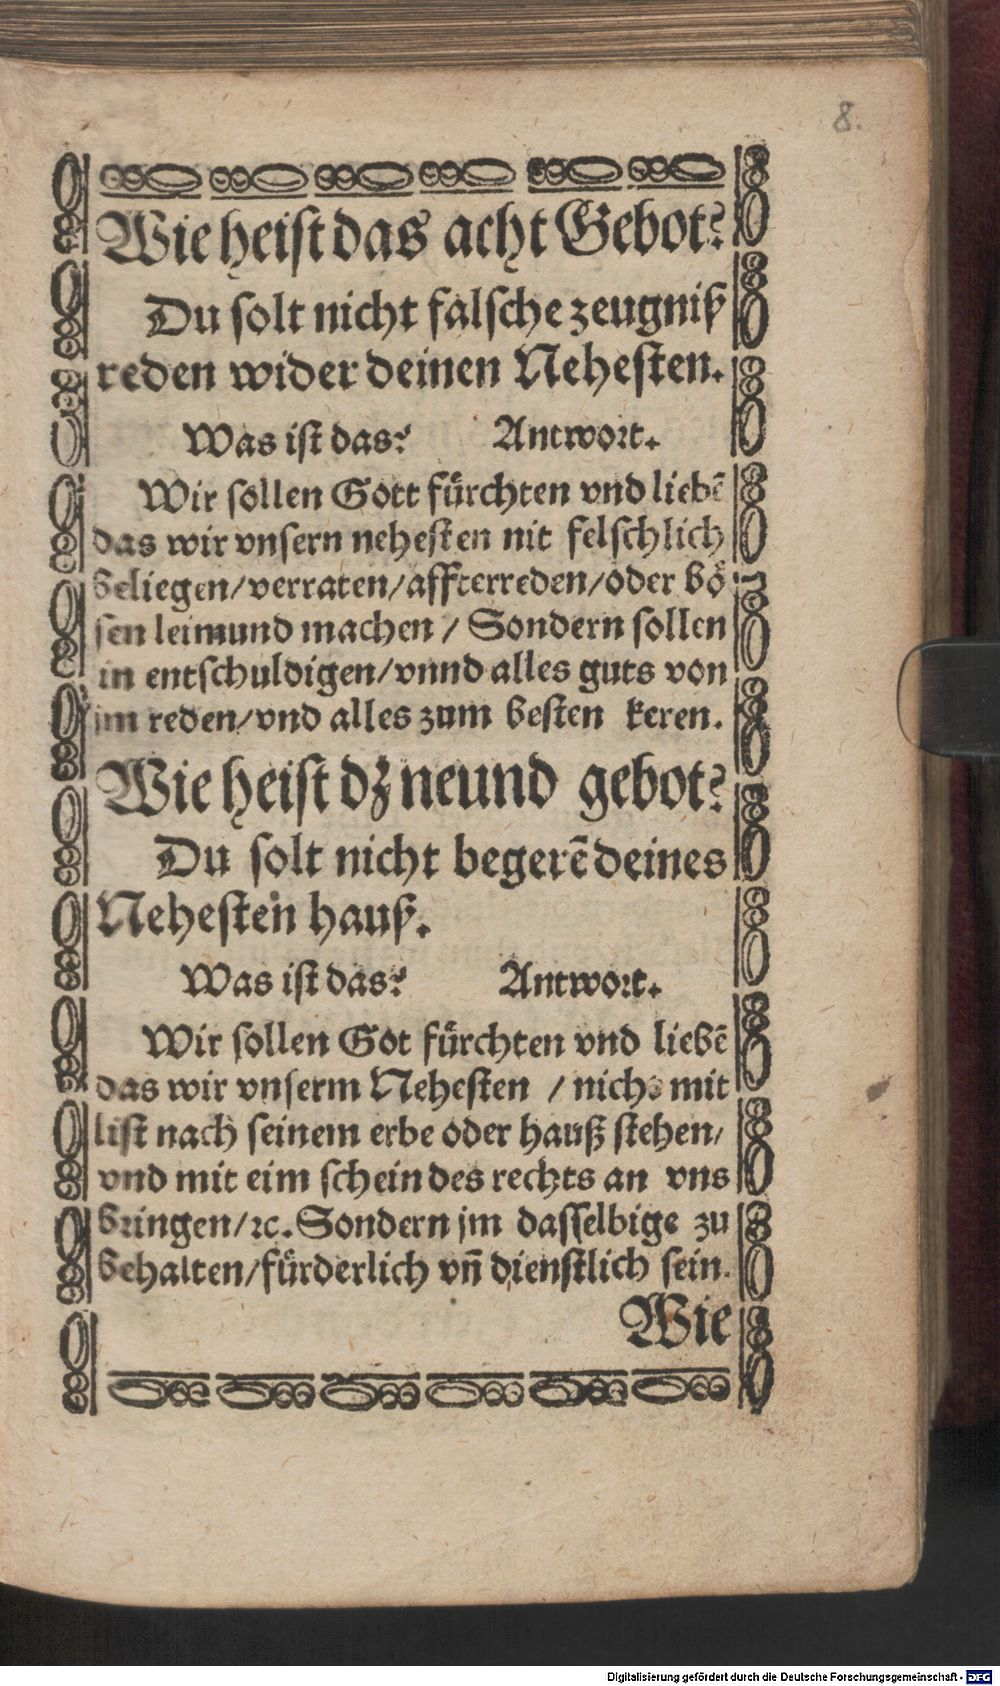 8.
Wie heist das acht Gebot?
Du solt nicht falsche zeugniß
reden wider deinen Nehesten.
Was ist das? Antwort.
Wir sollen Gott fürchten vnd liebē
das wir vnsern nehesten nit felschlich
beliegen/verraten/affterreden/oder bö
sen leimund machen / Sondern sollen
in entschuldigen/vnnd alles guts von
jm reden/vnd alles zum besten keren.
Wie heist dz neund gebot?
Du solt nicht begerē deines
Nehesten hauß.
Was ist das? Antwort.
Wir sollen Got fürchten vnd liebē
das wir vnserm Nehesten / nicht mit
list nach seinem erbe oder hauß stehen/
vnd mit eim schein des rechts an vns
bringen/ꝛc. Sondern jm dasselbige zu
behalten/fürderlich vn̄ dienstlich sein.
Wie
Digitalisierung gefördert durch die Deutsche Forschungsgemeinschaft - DFG